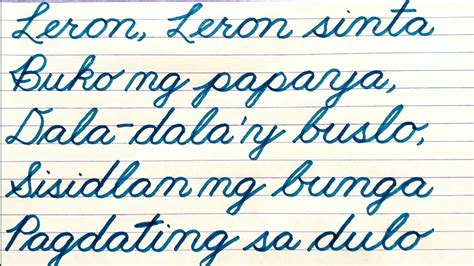 Leron, Leron sinta
Buko ng papaya,
Dala-dala'y buslo,
Sisidlan ng bunga
Pagdating sa dulo